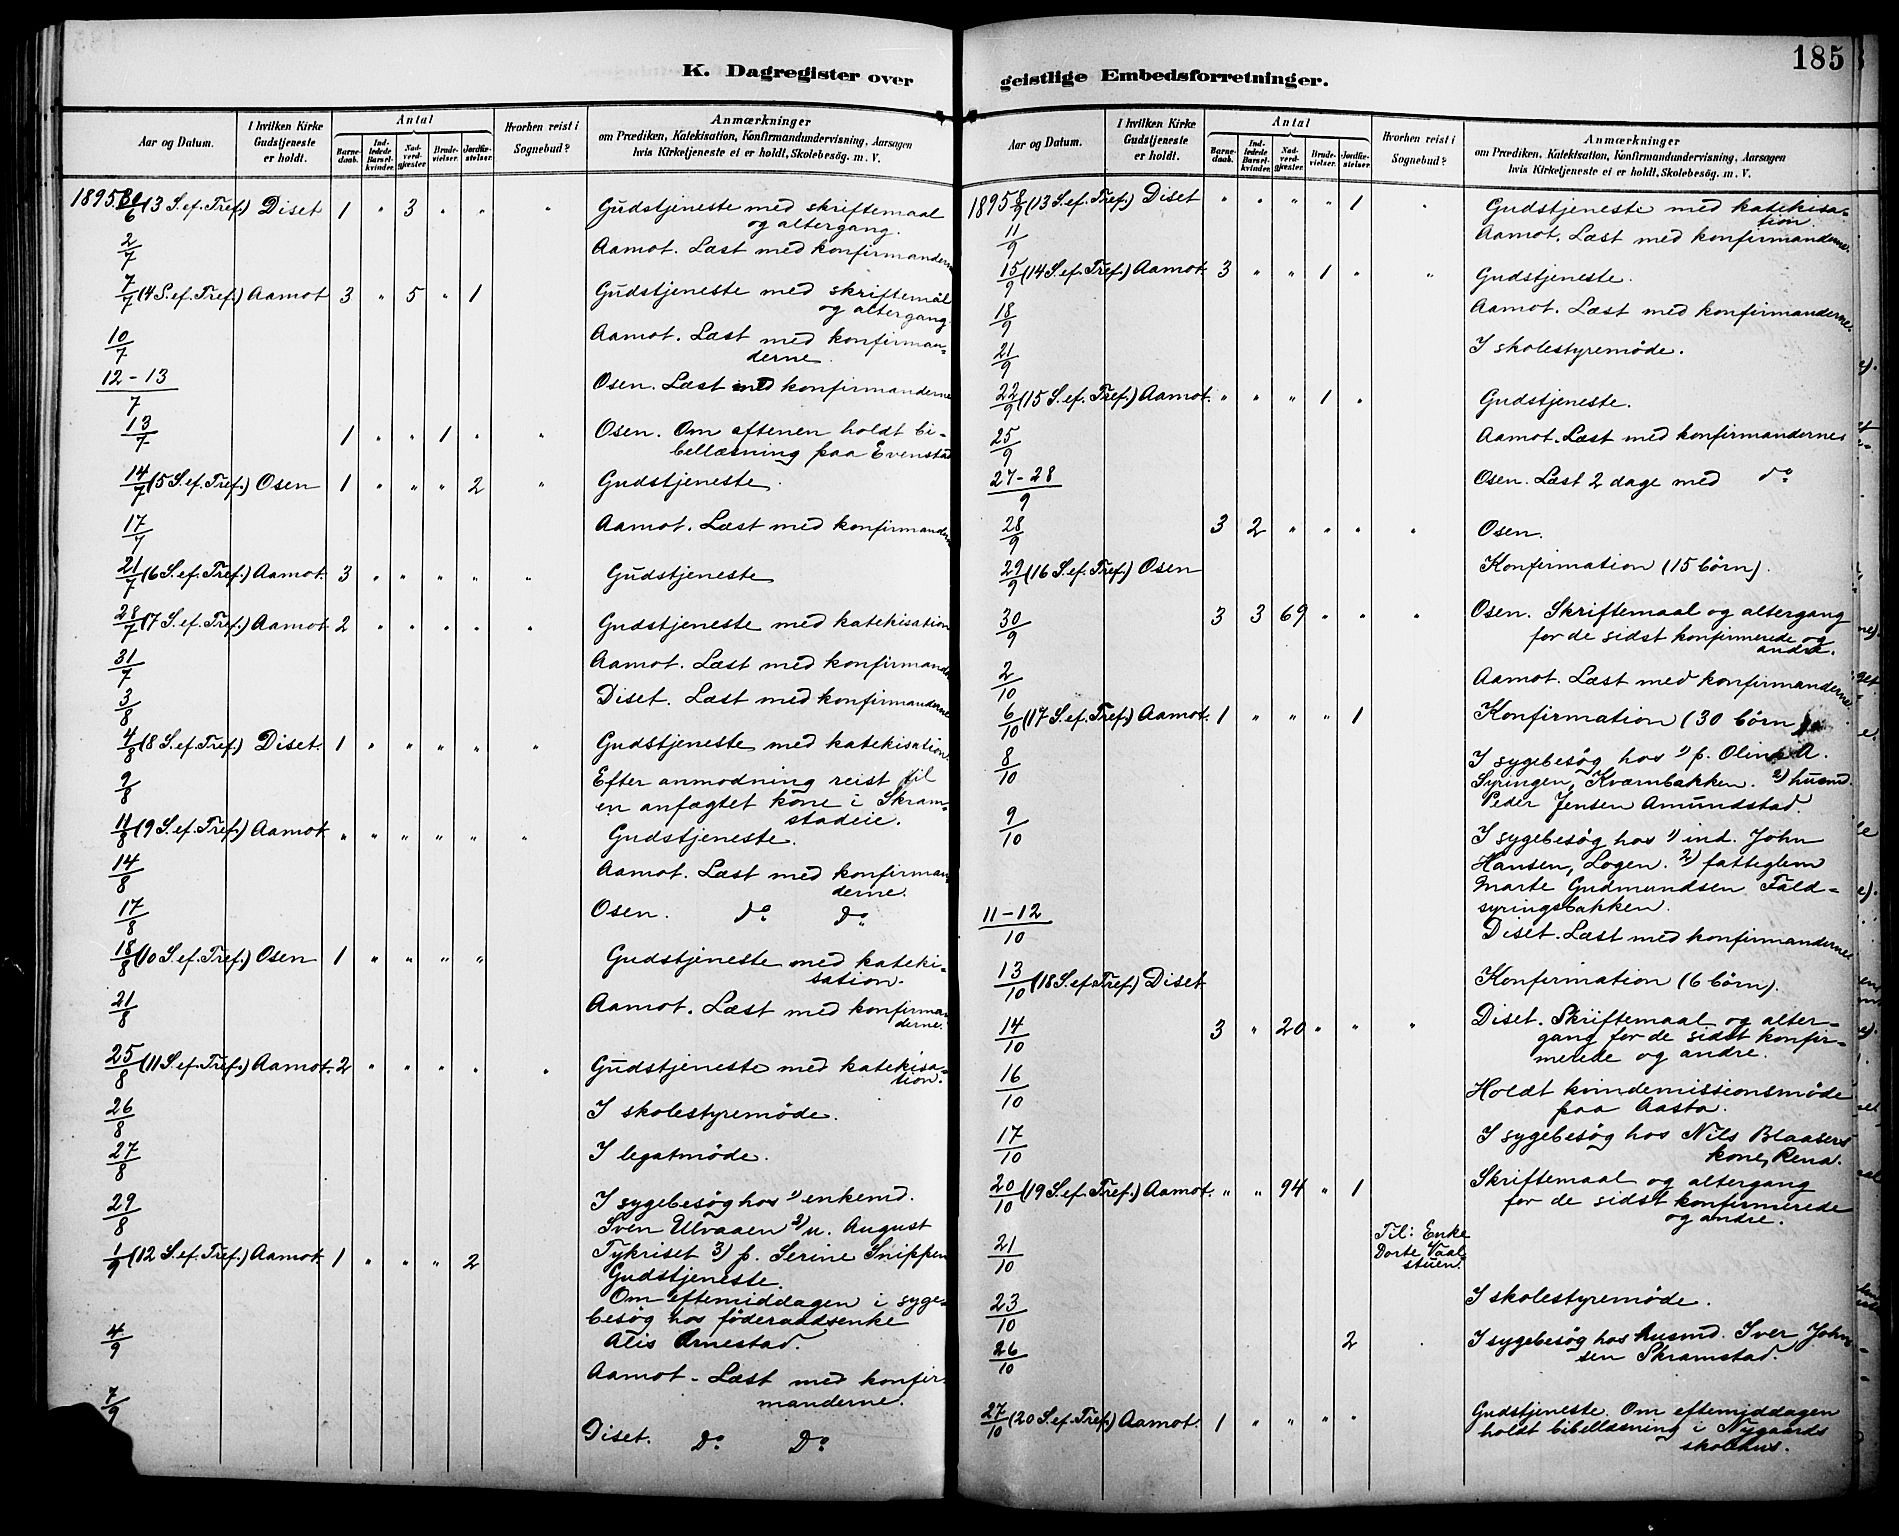 K. Dagregister over
Aar og Datum. I hvilken Kirke Gudstjeneste er holdt. Antal Barnedaab. Indledede Barselkvinder. Nadverdgjester. Brudevielser. Jordfæstelser. Hvorhen reist i Sognebud? Anmærkninger om Prædiken, Katekisation, Konfirmandundervisning, Aarsagen hvis Kirketjeneste ei er holdt, Skolebesög. m. V.
1895 30/6 (3 S. ef. Tref.) Diset 1 " 3 " " " Gudstjeneste med skriftemaal
og altergang.
2/7 Aamot. Læst med konfirmanderne
7/7 (4 S. ef. Tref.) Aamot 3 " 5 " 1 Gudstjeneste med skriftemål
og altergang
10/7 Aamot. Læst med konfirman-
derne.
12-13/7 Osen. Læst med konfirmanderne
13/7 1 " " 1 " " Osen. Om aftenen holdt bi-
bellæsning paa Evenstad
14/7 (5 S. ef. Tref.) Osen 1 " " " 2 " Gudstjeneste.
17/7 Aamot. Læst med konfirmanderne
21/7 (6 S. ef. Tref.) Aamot. 3 " " " " " Gudstjeneste
28/7 (7 S. ef. Tref.) Aamot. 2 " " " " " Gudstjeneste med katekisation
31/7 Aamot. Læst med konfirmander
3/8 Diset. Læst med konfirmanderne
4/8 (8 S. ef. Tref.) Diset. 1 " " " " " Gudstjeneste med katekisation.
9/8 Efter anmodning reist til
en anfægtet kone i Skram-
stadeie.
11/8 (9 S. ef. Tref.) Aamot " " " " " " Gudstjeneste.
14/8 Aamot. Læst med konfirman
derne.
17/8 Osen. do do
18/8 (10 S. ef. Tref.) Osen 1 " " " " Gudstjeneste med kateki-
sation.
21/8 Aamot. Læst med konfirman
derne.
25/8 (11 S. ef. Tref.) Aamot. 2 " " " " " Gudstjeneste med katekisa-
tion.
26/8 I skolestyremöde.
27/8 I legatmöde.
29/8 I sygebesög hos 1) enkemd.
Sven Ulvaaen 2) u. August
Tykriset 3) p. Serine Snippen
1/9 (12 S. ef. Tref.) Aamot. 1 " " " 2 Gudstjeneste.
Om eftemiddagen i syge-
besög hos föderaadsenke
Alis Arnestad.
4/9 Aamot. Læst med konfir-
manderne.
7/9 Diset. Do Do
185
geistlige Embedsforretninger.
Aar og Datum. I hvilken Kirke Gudstjeneste er holdt. Antal Barnedaab. Indledede Barselkvinder. Nadverdgjester. Brudevielser. Jordfæstelser. Hvorhen reist i Sognebud? Anmærkninger om Prædiken, Katekisation, Konfirmandundervisning, Aarsagen hvis Kirketjeneste ei er holdt, Skolebesög. m. V.
1895 8/9 (13 S. ef. Tref.) Diset " " " " 1 " Gudstjeneste med katekisa-
tion.
11/9 Aamot. Læst med konfirmanderne.
15/9 (14 S. ef. Tref.) Aamot. 3 " " 1 " " Gudstjeneste.
18/9 Aamot. Læst med konfirmanderne.
21/9 I skolestyremöde.
22/9 (15 S. ef. Tref.) Aamot. " " " 1 " Gudstjeneste.
25/9 Aamot. Læst med konfirmandernes
27-28/9 Osen. Læst 2 dage med do
28/9 3 2 " " " " Osen.
29/9 (16 S. ef. Tref.) Osen Konfirmation (15 börn).
30/9 3 3 69 " " " Osen. Skriftemaal og altergang
for de sidst konfirmerede og
andre.
2/10 Aamot. Læst med konfirmanderne.
6/10 (17 S. ef. Tref.) Aamot. 1 " " " 1 Konfirmation (30 börn
8/10 I sygebesög hos 1) p. Oline A.
Syringen, Kværnbakken. 2) husmd.
Peder Jensen Amundstad.
9/10 I sygebesög hos 1) ind. John
Hansen, Logen. 2) fattiglem
Marte Gudmundsen Fald-
syringsbakken.
11-12/10 Diset. Læst med konfirmanderne
13/10 (18 S. ef. Tref.) Diset Konfirmation (6 börn).
14/10 3 " 20 " " " Diset. Skriftemaal og alter-
gang for de sidst konfir-
merede og andre.
16/10 Holdt kvindemissionsmöde
paa Aasta.
17/10 I sygebesög hos Nils Blaasers
kone, Rena.
20/10 (19 S. ef. Tref.) Aamot. " " 94 " 1 Skriftemaal og altergang
for de sidst konfirmerede
og andre.
21/10 Til: Enke
Dorte Vaal-
stuen.
23/10 I skolestyremöde.
26/10 2 " I sygebesög hos husmd. Iver John
sen Skramstad.
27/10 (20 S. ef. Tref.) Aamot. 1 " " " " Gudstjeneste. Om eftemiddagen
holdt bibellæsning i Nygaards
skolehus.